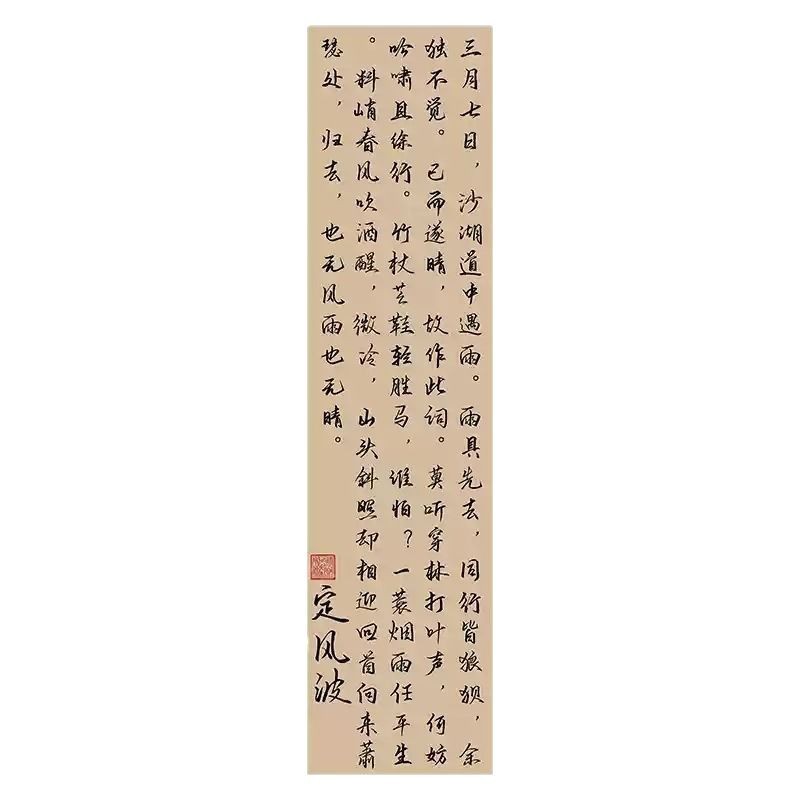 三月七日，沙湖道中遇雨。雨具先去，同行皆狼狈，余
独不觉。已而遂晴，故作此词。莫听穿林打叶声，何妨
吟啸且徐行。竹杖芒鞋轻胜马，谁怕？一蓑烟雨任平生
。料峭春风吹酒醒，微冷，山头斜照却相迎回首向来萧
瑟处，归去，也无风雨也无晴。
定风波